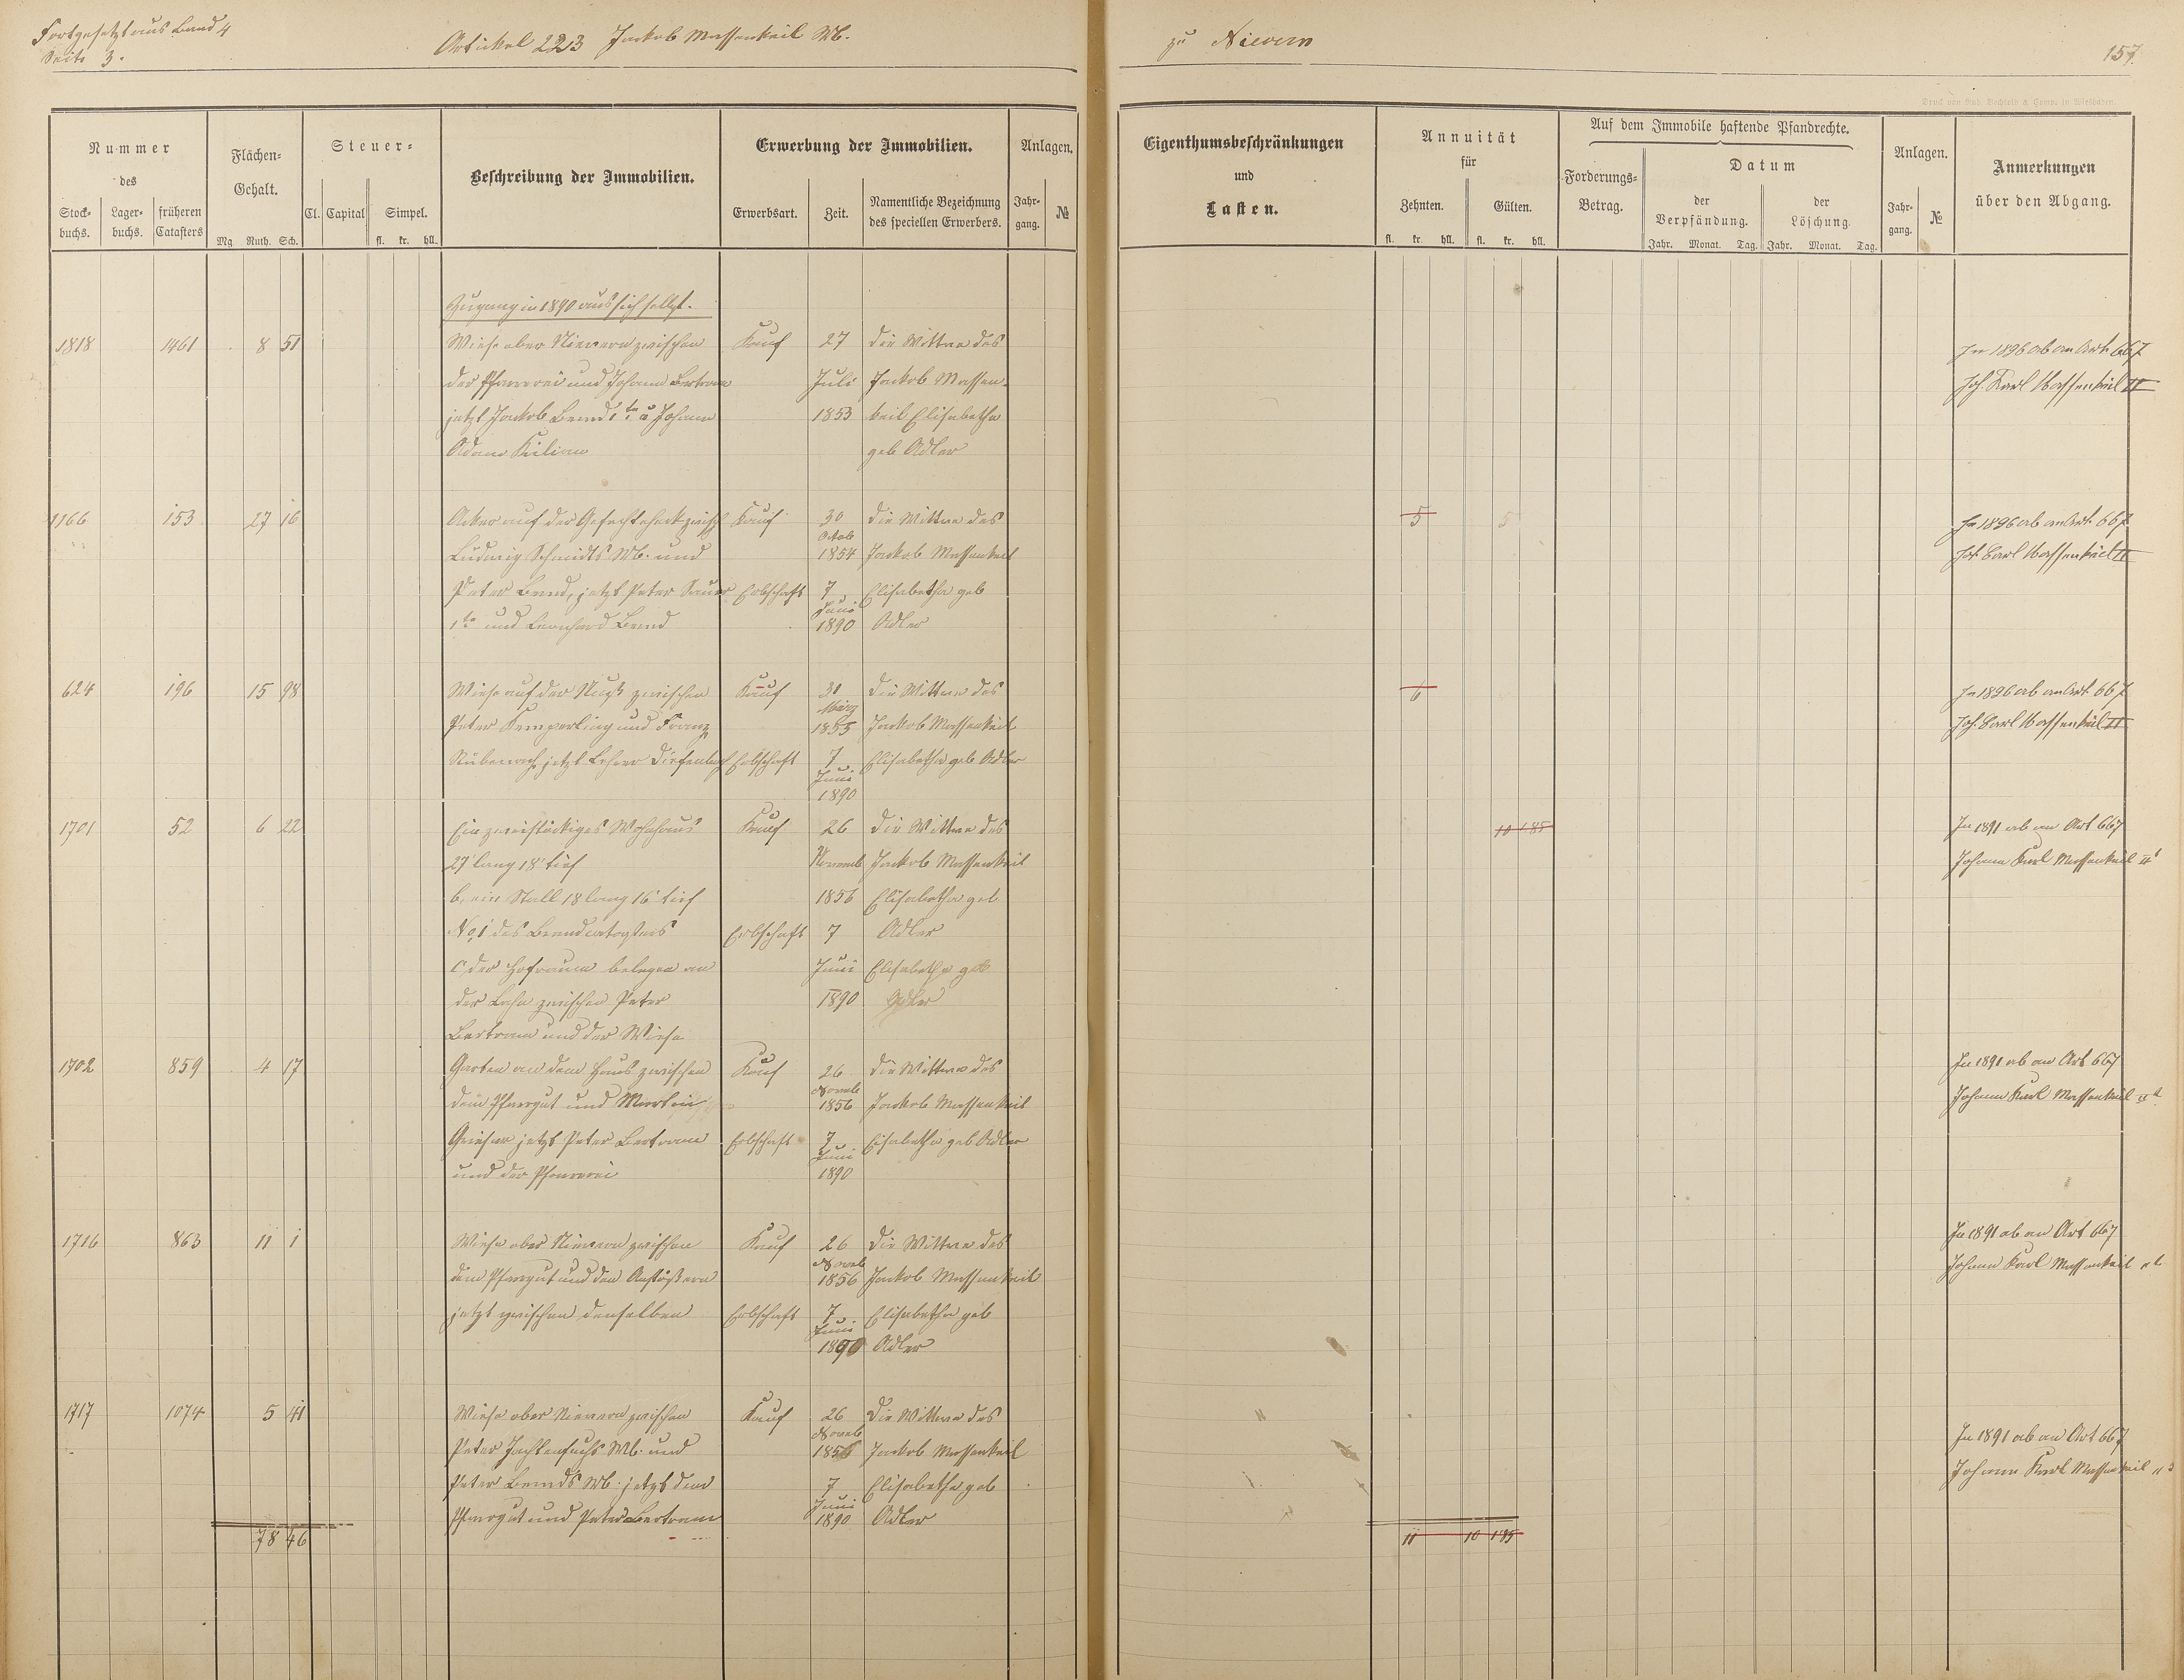 Fortgesetzt aus Band 4
Seite 3.
Artikel 223 Jackob Massenkeil Wb.
zu Nievern
157.
Druck von Rud. Bechtold & Comp. in Wiesbaden.
Nummer
des
Stock-
buchs.
Lager-
buchs.
früheren
Catasters
Flächen-
Gehalt.
Mg. Ruth. Sch.
Steuer-
Cl. Capital Simpel.
fl. kr. hll.
Beschreibung der Immobilien.
Erwerbung der Immobilien.
Erwerbsart.
Zeit.
Namentliche Bezeichnung
des speciellen Erwerbers.
Anlagen.
Jahr-
gang.
№
Eigenthumsbeschränkungen
und
Lasten.
Annuität
für
Zehnten.
Gülten.
fl. kr. hll. fl. kr. hll.
Auf dem Immobile haftende Pfandrechte.
Forderungs-
Betrag.
Datum
der
Verpfändung.
der
Löschung.
Jahr. Monat. Tag. Jahr. Monat. Tag.
Anlagen.
Jahr-
gang.
№
Anmerkungen
über den Abgang.
Zugang in 1890 aus sich selbst.
1818 1461 8 51 Wiese ober Nievern zwischen Kauf 27 die Wittwe des In 1896 ab an Art. 667
der Pfarrei und Johann Bertram Juli Jackob Massen- Joh. Karl Massenkeil II
jetzt Jackob Bend 1te u Johann 1853 keil Elisabetha
Adam Kilian geb Adler
1166 153 27 16 Acker auf der zwisch Kauf 30 die Wittwe des 5 5 In 1896 ab an Art. 667
Octob
Ludwig Schmidts Wb. und 1854 Jackob Massenkeil Joh. Carl Massenkeil II
Peter Bend, jetzt Peter Sauer Erbschaft 7 Elisabetha geb
Juni
1te und Leonhard Bend 1890 Adler
624 196 15 98 Wiese auf der zwischen Kauf 31 die Wittwe des 6 In 1896 ab an Art. 667
März
Peter Kemperling und Franz 1855 Jackob Massenkeil Joh. Carl Massenkeil II
Rübenach jetzt Lehrer Diefenbach Erbschaft 7 Elisabetha geb Adler
Juni
1890
1701 52 6 22 Ein zweistöckiges Wohnhaus Kauf 26 die Wittwe des 10 1 85 In 1891 ab an Art 667
27' lang 18' tief Novemb Jackob Massenkeil Johann Karl Massenkeil IIt
b, ein Stall 18 lang 16' tief 1856 Elisabetha geb
No 1 des Brandcatasters Erbschaft 7 Adler
c der Hofraum belegen an Juni Elisabetha geb
der Lahn zwischen Peter 1890 Adler
Bertram und der Wiese
1702 859 4 17 Garten an dem Haus zwischen Kauf 26 die Wittwe des In 1891 ab an Art 667
Novemb
dem Pfarrgut und Martin 1856 Jackob Massenkeil Johann Karl Massenkeil IIt
jetzt Peter Bertram Erbschaft 7 Elisabetha geb Adler
Juni
und der Pfarrei 1890
1716 863 11 1 Wiese ober Nievern zwischen Kauf 26 die Wittwe des In 1891 ab an Art 667
Novemb
dem Pfarrgut und den Anstößern 1856 Jackob Massenkeil Johann Karl Massenkeil IIt
jetzt zwischen denselben Erbschaft 7 Elisabetha geb
Juni
1890 Adler
1717 1074 5 41 Wiese ober Nievern zwischen Kauf 26 die Wittwe des
Novemb
Peter Wb. und 1856 Jackob Massenkeil In 1891 ab an Art 667
Peter Bends Wb. jetzt dem 7 Elisabetha geb Johann Karl Massenkeil
Juni
Pfarrgut und Peter Bertram 1890 Adler
78 46 11 10 1 85